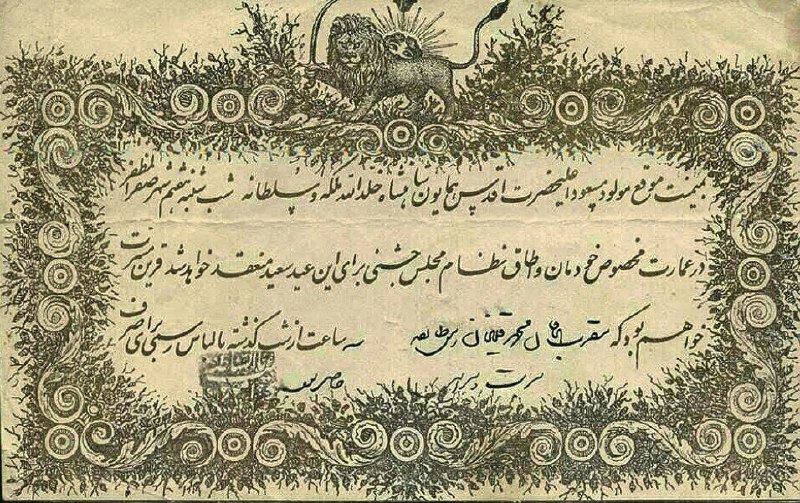 بمیمنت موقع مولود مسعود اعلیحضرت اقدس همایون شاهنشاه خلدالله ملکه و سلطانه شب شنبه هفتم شهر صفر المظفر
در عمارت مخصوص خودمان و اطاق نظام مجلس جشنی برای این عید سعید منعقد خواهد شد قرین مسرت
خواهیم بود که مقرب الخاقان محمد تقیخان سه ساعت از شب گذشته با لباس رسمی برای صرف
شربت و شیرینی حاضر